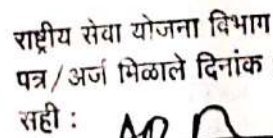 राष्ट्रीय सेवा योजना विभाग
पत्र/अर्ज मिळाले दिनांक
सही :